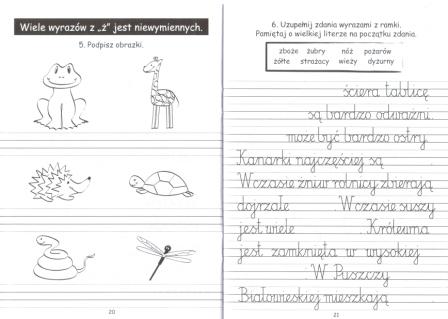 Wiele wyrazów z „ż” jest niewymiennych.
5. Podpisz obrazki.
20
6. Uzupełnij zdania wyrazami z ramki.
Pamiętaj o wielkiej literze na początku zdania.
zboże żubry nóż pożarów
żółte strażacy wieży dyżurny
ściera tablicę.
są bardzo odważni.
może być bardzo ostry.
Kanarki najczęściej są
Wczasie żniw rolnicy zbierają
dojrzałe . Wczasie suszy
jest wiele . Królewna
jest zamknięta w wysokiej
. W Puszczy
Białowieskiej mieszkają
21